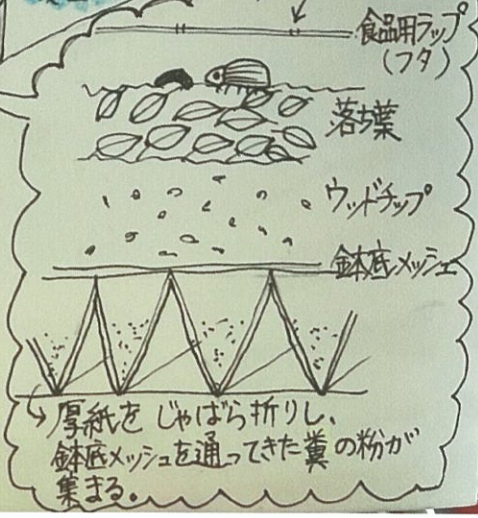 食品用ラップ
(フタ)
落ち葉
ウッドチップ
鉢底メッシュ
厚紙をじゃばら折りし、
鉢底メッシュを通ってきた糞の粉が
集まる。